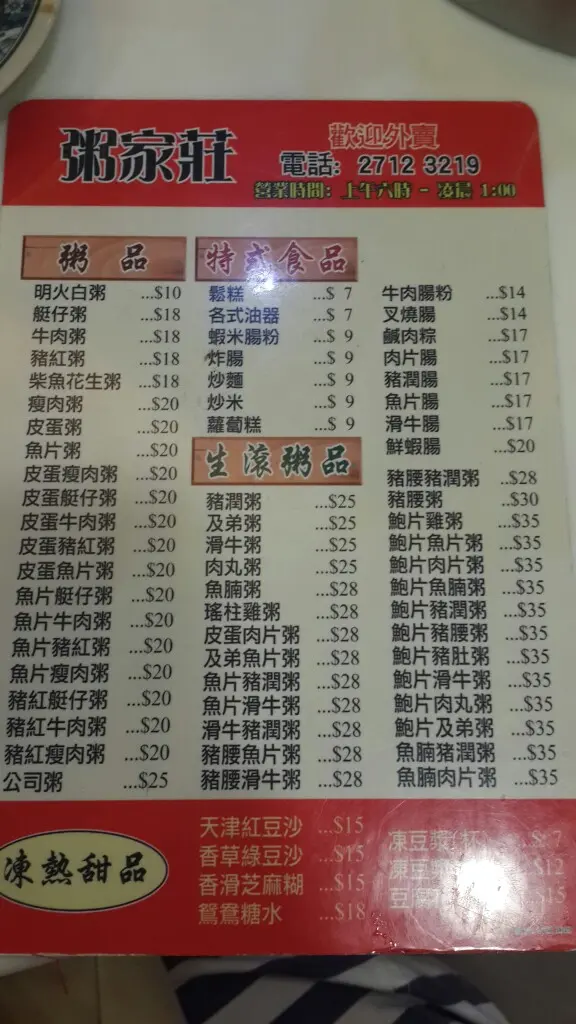 粥家莊
歡迎外賣
電話: 2712 3219
營業時間: 上午六時 - 凌晨 1:00
粥 品
明火白粥 ...$10
艇仔粥 ...$18
牛肉粥 ...$18
豬紅粥 ...$18
柴魚花生粥 ...$18
瘦肉粥 ...$20
皮蛋粥 ...$20
魚片粥 ...$20
皮蛋瘦肉粥 ...$20
皮蛋艇仔粥 ...$20
皮蛋牛肉粥 ...$20
皮蛋豬紅粥 ...$20
皮蛋魚片粥 ...$20
魚片艇仔粥 ...$20
魚片牛肉粥 ...$20
魚片豬紅粥 ...$20
魚片瘦肉粥 ...$20
豬紅艇仔粥 ...$20
豬紅牛肉粥 ...$20
豬紅瘦肉粥 ...$20
公司粥 ...$25
特式食品
鬆糕 ...$ 7
各式油器 ...$ 7
蝦米腸粉 ...$ 9
炸腸 ...$ 9
炒麵 ...$ 9
炒米 ...$ 9
蘿蔔糕 ...$ 9
牛肉腸粉 ...$14
叉燒腸 ...$14
鹹肉粽 ...$17
肉片腸 ...$17
豬潤腸 ...$17
魚片腸 ...$17
滑牛腸 ...$17
鮮蝦腸 ...$20
生滾粥品
豬潤粥 ...$25
及弟粥 ...$25
滑牛粥 ...$25
肉丸粥 ...$25
魚腩粥 ...$28
瑤柱雞粥 ...$28
皮蛋肉片粥 ...$28
及弟魚片粥 ...$28
魚片豬潤粥 ...$28
魚片滑牛粥 ...$28
滑牛豬潤粥 ...$28
豬腰魚片粥 ...$28
豬腰滑牛粥 ...$28
豬腰豬潤粥 ...$28
豬腰粥 ...$30
鮑片雞粥 ...$35
鮑片魚片粥 ...$35
鮑片肉片粥 ...$35
鮑片魚腩粥 ...$35
鮑片豬潤粥 ...$35
鮑片豬腰粥 ...$35
鮑片豬肚粥 ...$35
鮑片滑牛粥 ...$35
鮑片肉丸粥 ...$35
鮑片及弟粥 ...$35
魚腩豬潤粥 ...$35
魚腩肉片粥 ...$35
凍熱甜品
天津紅豆沙 ...$15
香草綠豆沙 ...$15
香滑芝麻糊 ...$15
鴛鴦糖水 ...$18
凍豆漿(杯) ...$ 7
凍豆漿 $12
豆 15